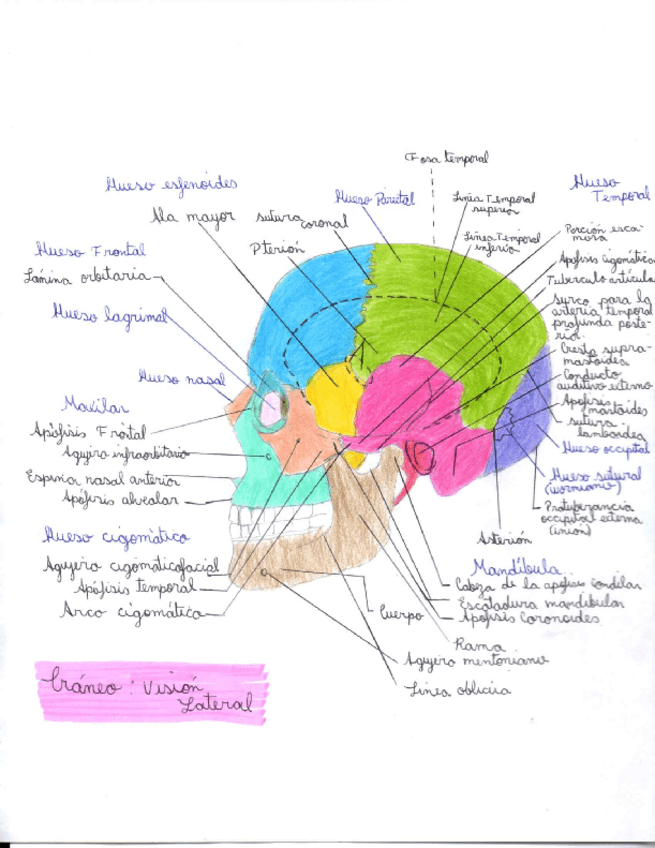 Fosa temporal
Hueso esfenoides
Ala mayor
sutura coronal
Hueso Parietal
Linea Temporal
superior
Linea Temporal
inferior
Hueso
Temporal
Pterión
Porción esca-
mosa
Apófisis cigomática
Tuberculo articular
surco para la
arteria temporal
profunda poste-
rior
Cresta supra-
mastoidea
Conducto
auditivo externo
Apófisis
mastoides
sutura
lamboidea
Hueso occipital
Hueso sutural
(wormiano)
Protuberancia
occipital externa
(inion)
Asterión
Hueso Frontal
Lámina orbitaria
Hueso lagrimal
Hueso nasal
Maxilar
Apófisis Frontal
Agujero infraorbitario
Espina nasal anterior
Apófisis alveolar
Hueso cigomático
Agujero cigomaticofacial
Apófisis temporal
Arco cigomático
Mandíbula
Cabeza de la apófisis condilar
Escotadura mandibular
Apófisis Coronoides
Cuerpo
Rama
Agujero mentoniano
Linea oblicua
Cráneo: Visión
Lateral